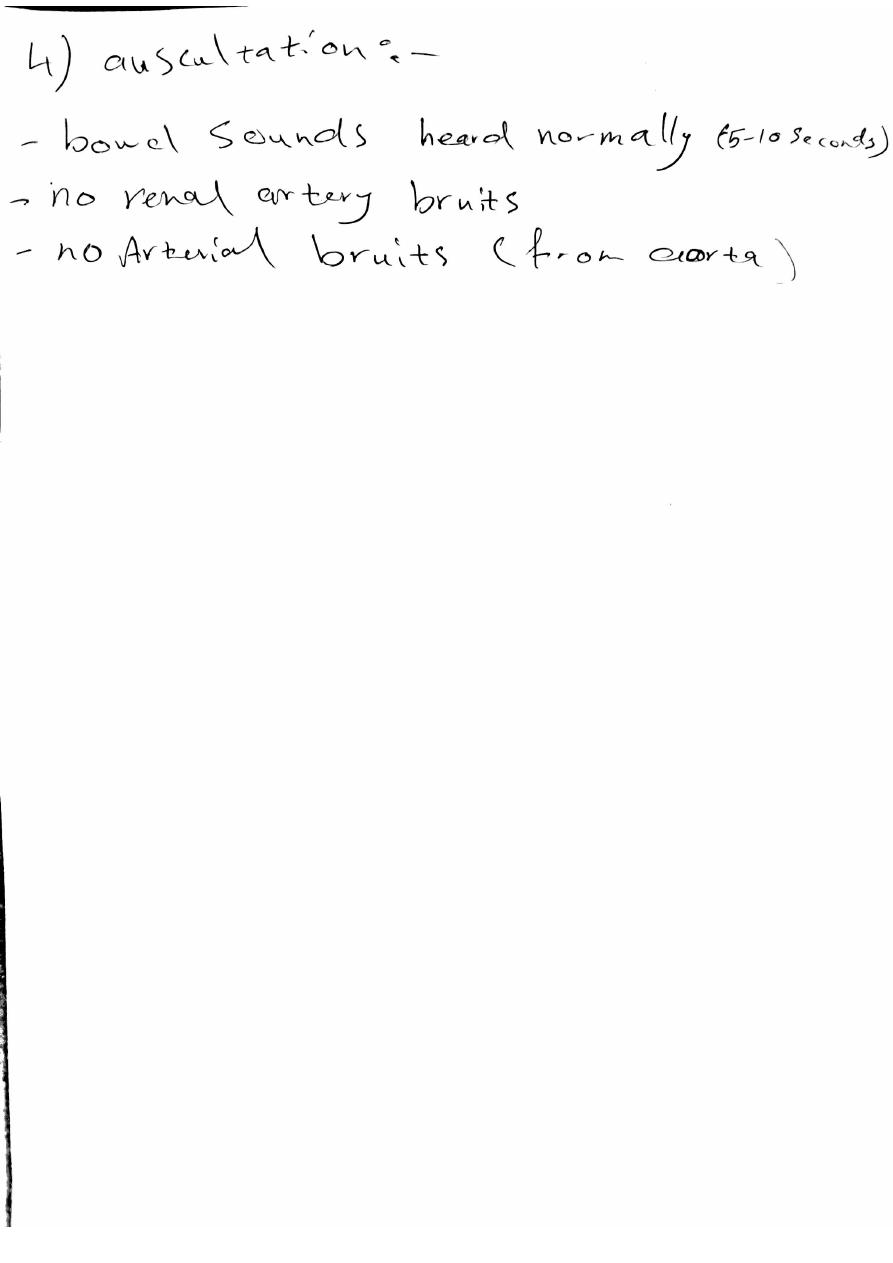 4) auscultation:-
- bowel sounds heard normally (5-10 seconds)
- no renal artery bruits
- no Arterial bruits (from aorta)